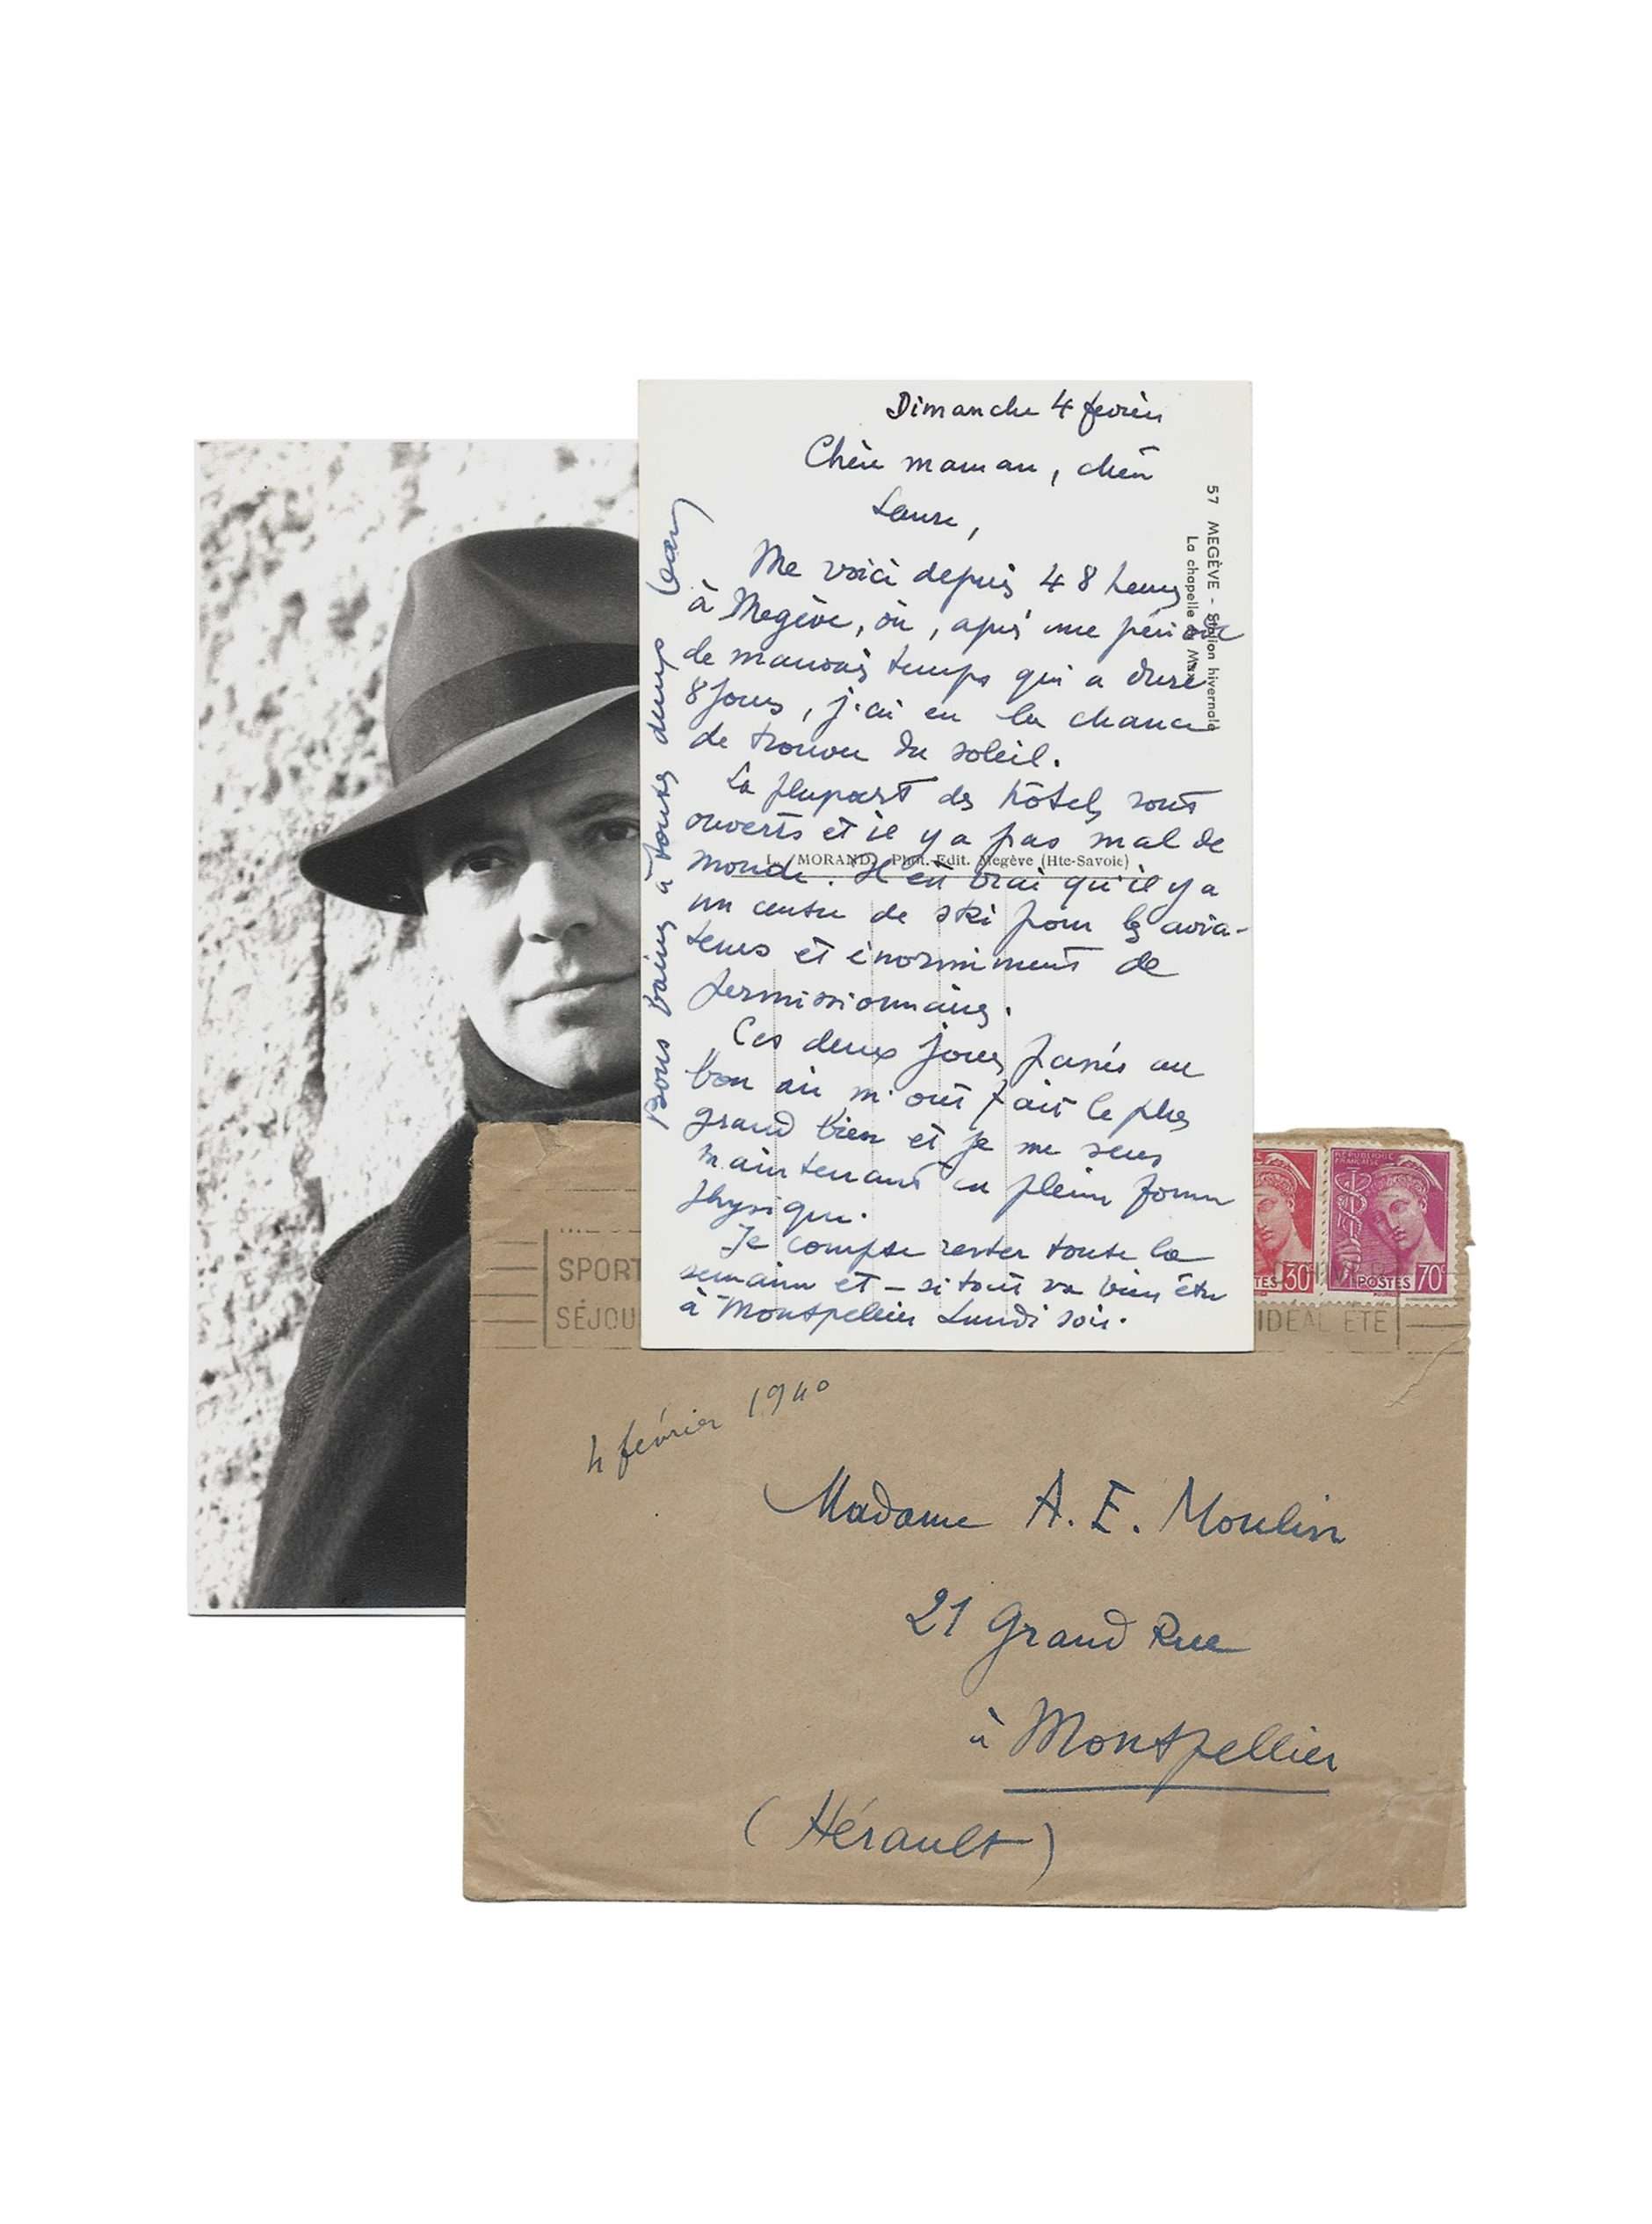 Dimanche 4 fevrier
Chère maman, chère
Laure,
Me voici depuis 48 heures
à Megève, où, après une période
de mauvais temps qui a duré
8 jours, j'ai eu la chance
de trouver du soleil.
La plupart des hôtels sont
ouverts et il y a pas mal de
monde. Il est vrai qu'il y a
un centre de ski pour les avia-
teurs et énormément de
permissionnaires.
Ces deux jours passés au
bon air m'ont fait le plus
grand bien et je me sens
maintenant en pleine forme
physique.
Je compte rester toute la
semaine et - si tout va bien être
à Montpellier Lundi soir.
Bons baisers à toutes deux Jean
57 MEGÈVE - Station hivernale
La chapelle du Maz
L. MORAND, Phot. Edit. Megève (Hte-Savoie)
REPUBLIQUE
FRANÇAISE
TES 30
POSTES 70c
SPORT
SÉJOU
IDEAL ETE
4 février 1940
Madame A. E. Moulin
21 Grand Rue
à Montpellier
(Hérault)